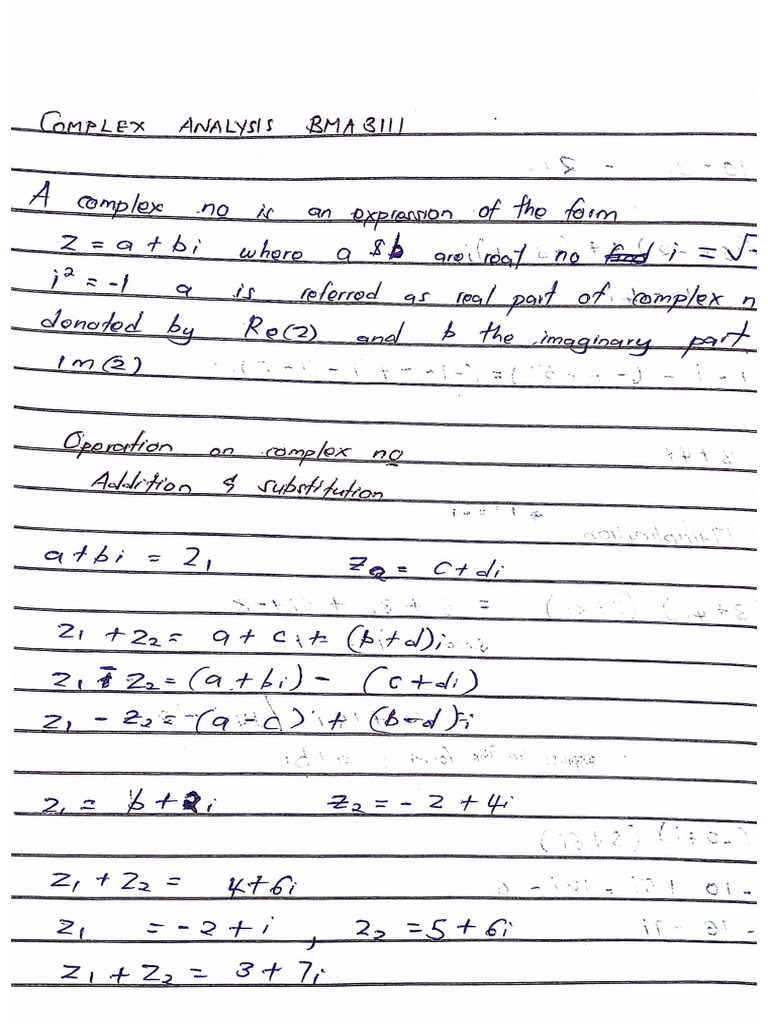 COMPLEX ANALYSIS BMA 3111
A complex no is an expression of the form
z = a + bi where a & b are real no i = √-
i² = -1 a is referred as real part of complex n
denoted by Re(z) and b the imaginary part
Im(z)
Operation on complex no
Addition & substitution
a + bi = z₁ z₂ = c + di
z₁ + z₂ = a + c + (b + d)i
z₁ - z₂ = (a + bi) - (c + di)
z₁ - z₂ = (a - c) + (b - d)i
z₁ = 6 + 2i z₂ = -2 + 4i
z₁ + z₂ = 4 + 6i
z₁ = -2 + i , z₂ = 5 + 6i
z₁ + z₂ = 3 + 7i